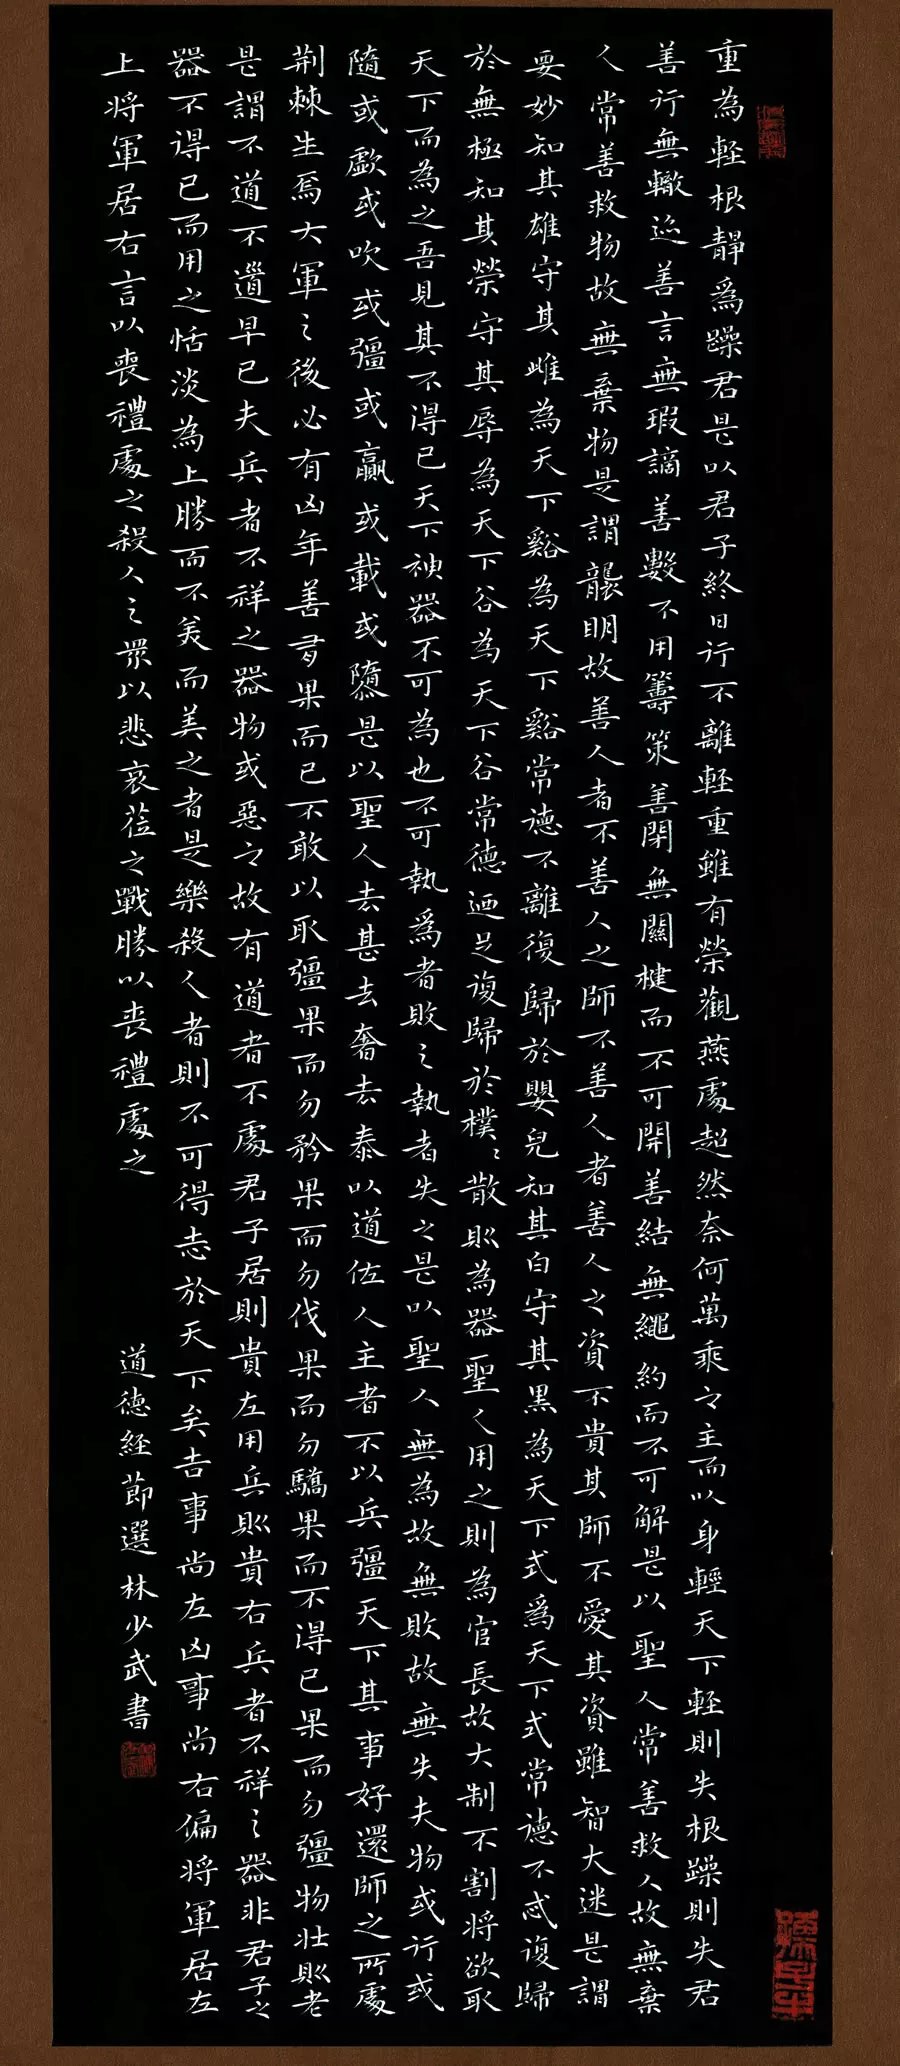 重為輕根靜為躁君是以君子終日行不離輕重雖有榮觀燕處超然奈何萬乘之主而以身輕天下輕則失根躁則失君
善行無轍迹善言無瑕讁善數不用籌策善閉無關楗而不可開善結無繩約而不可解是以聖人常善救人故無棄
人常善救物故無棄物是謂襲明故善人者不善人之師不善人者善人之資不貴其師不愛其資雖智大迷是謂
要妙知其雄守其雌為天下谿為天下谿常德不離復歸於嬰兒知其白守其黑為天下式為天下式常德不忒復歸
於無極知其榮守其辱為天下谷為天下谷常德迺足復歸於樸〻散則為器聖人用之則為官長故大制不割將欲取
天下而為之吾見其不得已天下神器不可為也不可執為者敗之執者失之是以聖人無為故無敗故無失夫物或行或
隨或歔或吹或彊或羸或載或隳是以聖人去甚去奢去泰以道佐人主者不以兵彊天下其事好還師之所處
荆棘生焉大軍之後必有凶年善者果而已不敢以取彊果而勿矜果而勿伐果而勿驕果而不得已果而勿彊物壯則老
是謂不道不道早已夫兵者不祥之器物或惡之故有道者不處君子居則貴左用兵則貴右兵者不祥之器非君子之
器不得已而用之恬淡為上勝而不美而美之者是樂殺人者則不可得志於天下矣吉事尚左凶事尚右偏將軍居左
上將軍居右言以喪禮處之殺人之眾以悲哀蒞之戰勝以喪禮處之
道德経節選 林少武書